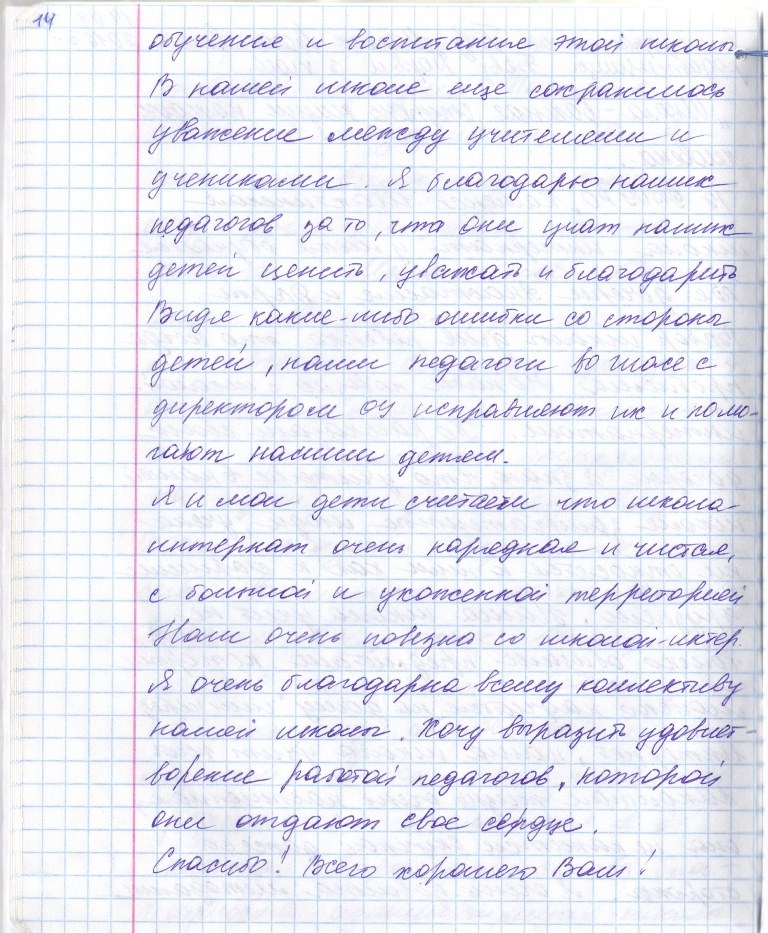 14
обучения и воспитания этой школы
В нашей школе еще сохранилось
уважение между учителями и
учениками. Я благодарю наших
педагогов за то, что они учат наших
детей ценить, уважать и благодарить
Видя какие-либо ошибки со стороны
детей, наши педагоги во главе с
директором ОУ исправляют их и помо-
гают нашим детям.
Я и мои дети считаем что школа
интернат очень нарядная и чистая,
с большой и ухоженной территорией
Нам очень повезло со школой-интер.
Я очень благодарна всему коллективу
нашей школы. Хочу выразить удовлет-
ворение работой педагогов, которой
они отдают свое сердце.
Спасибо! Всего хорошего Вам!